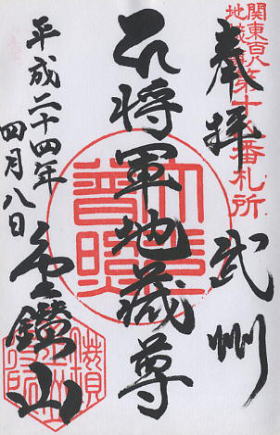 関東百八
地蔵
第十番札所
奉拝 武州
将軍地蔵尊
平成二十四年
四月八日
鐘山